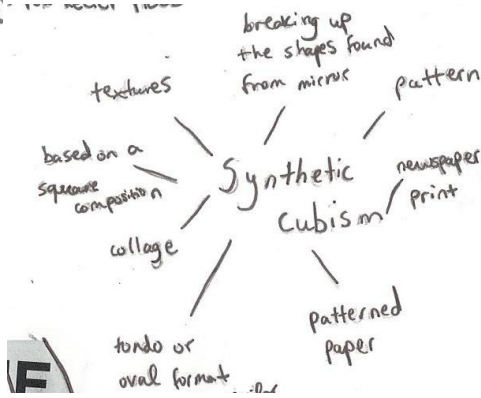 breaking up
the shapes found
from micros
textures
pattern
based on a
square
composition
Synthetic
cubism
newspaper
print
collage
patterned
paper
tondo or
oval format